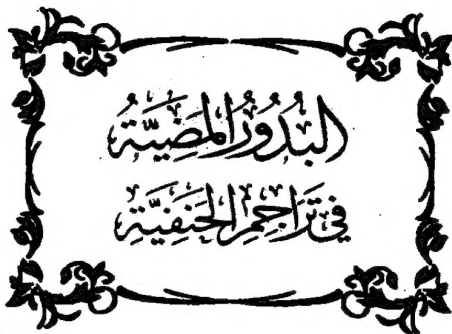 البُدُورُ المَضِيَّةُ
فِي تَرَاجِمِ الْحَنَفِيَّةِ